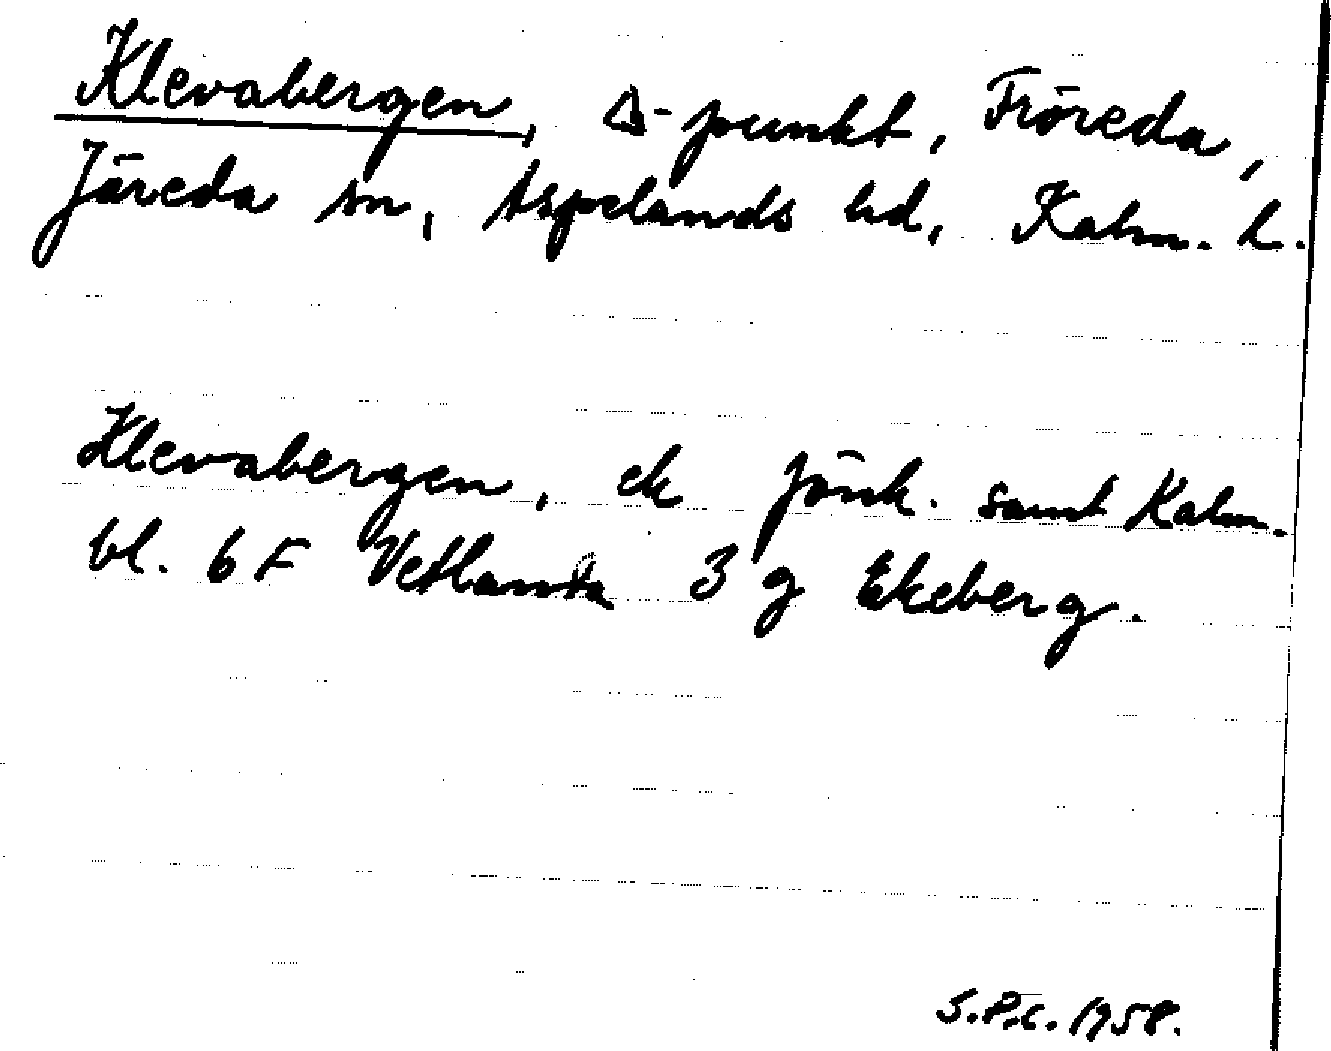 Klevabergen, △-punkt, Fröreda,
Järeda sn, Aspelands hd, Kalm. L.
Klevabergen, ek Jönk. samt Kalm.
bl. 6 F Vetlanda 3 g Ekeberg.
S.P.C. 1958.